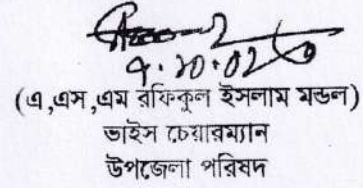 (এ,এস,এম রফিকুল ইসলাম মন্ডল)
ভাইস চেয়ারম্যান
উপজেলা পরিষদ